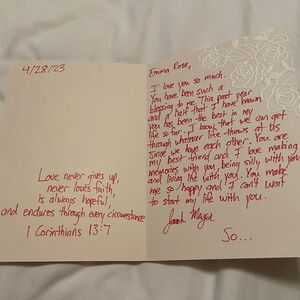 4/28/23
Love never gives up,
never loses faith,
is always hopeful,
and endures through every circumstance
1 Corinthians 13:7
Emma Rose,
I love you so much.
You have been such a
blessing to me. This past year
and a half that I have known
you has been the best in my
life so far. I know that we can get
through whatever life throws at us
Since we have each other. You are
my best friend and I love making
memories with you, being silly with you
and living life with you. You make
me so happy and I can't wait
to start my life with you.
So...